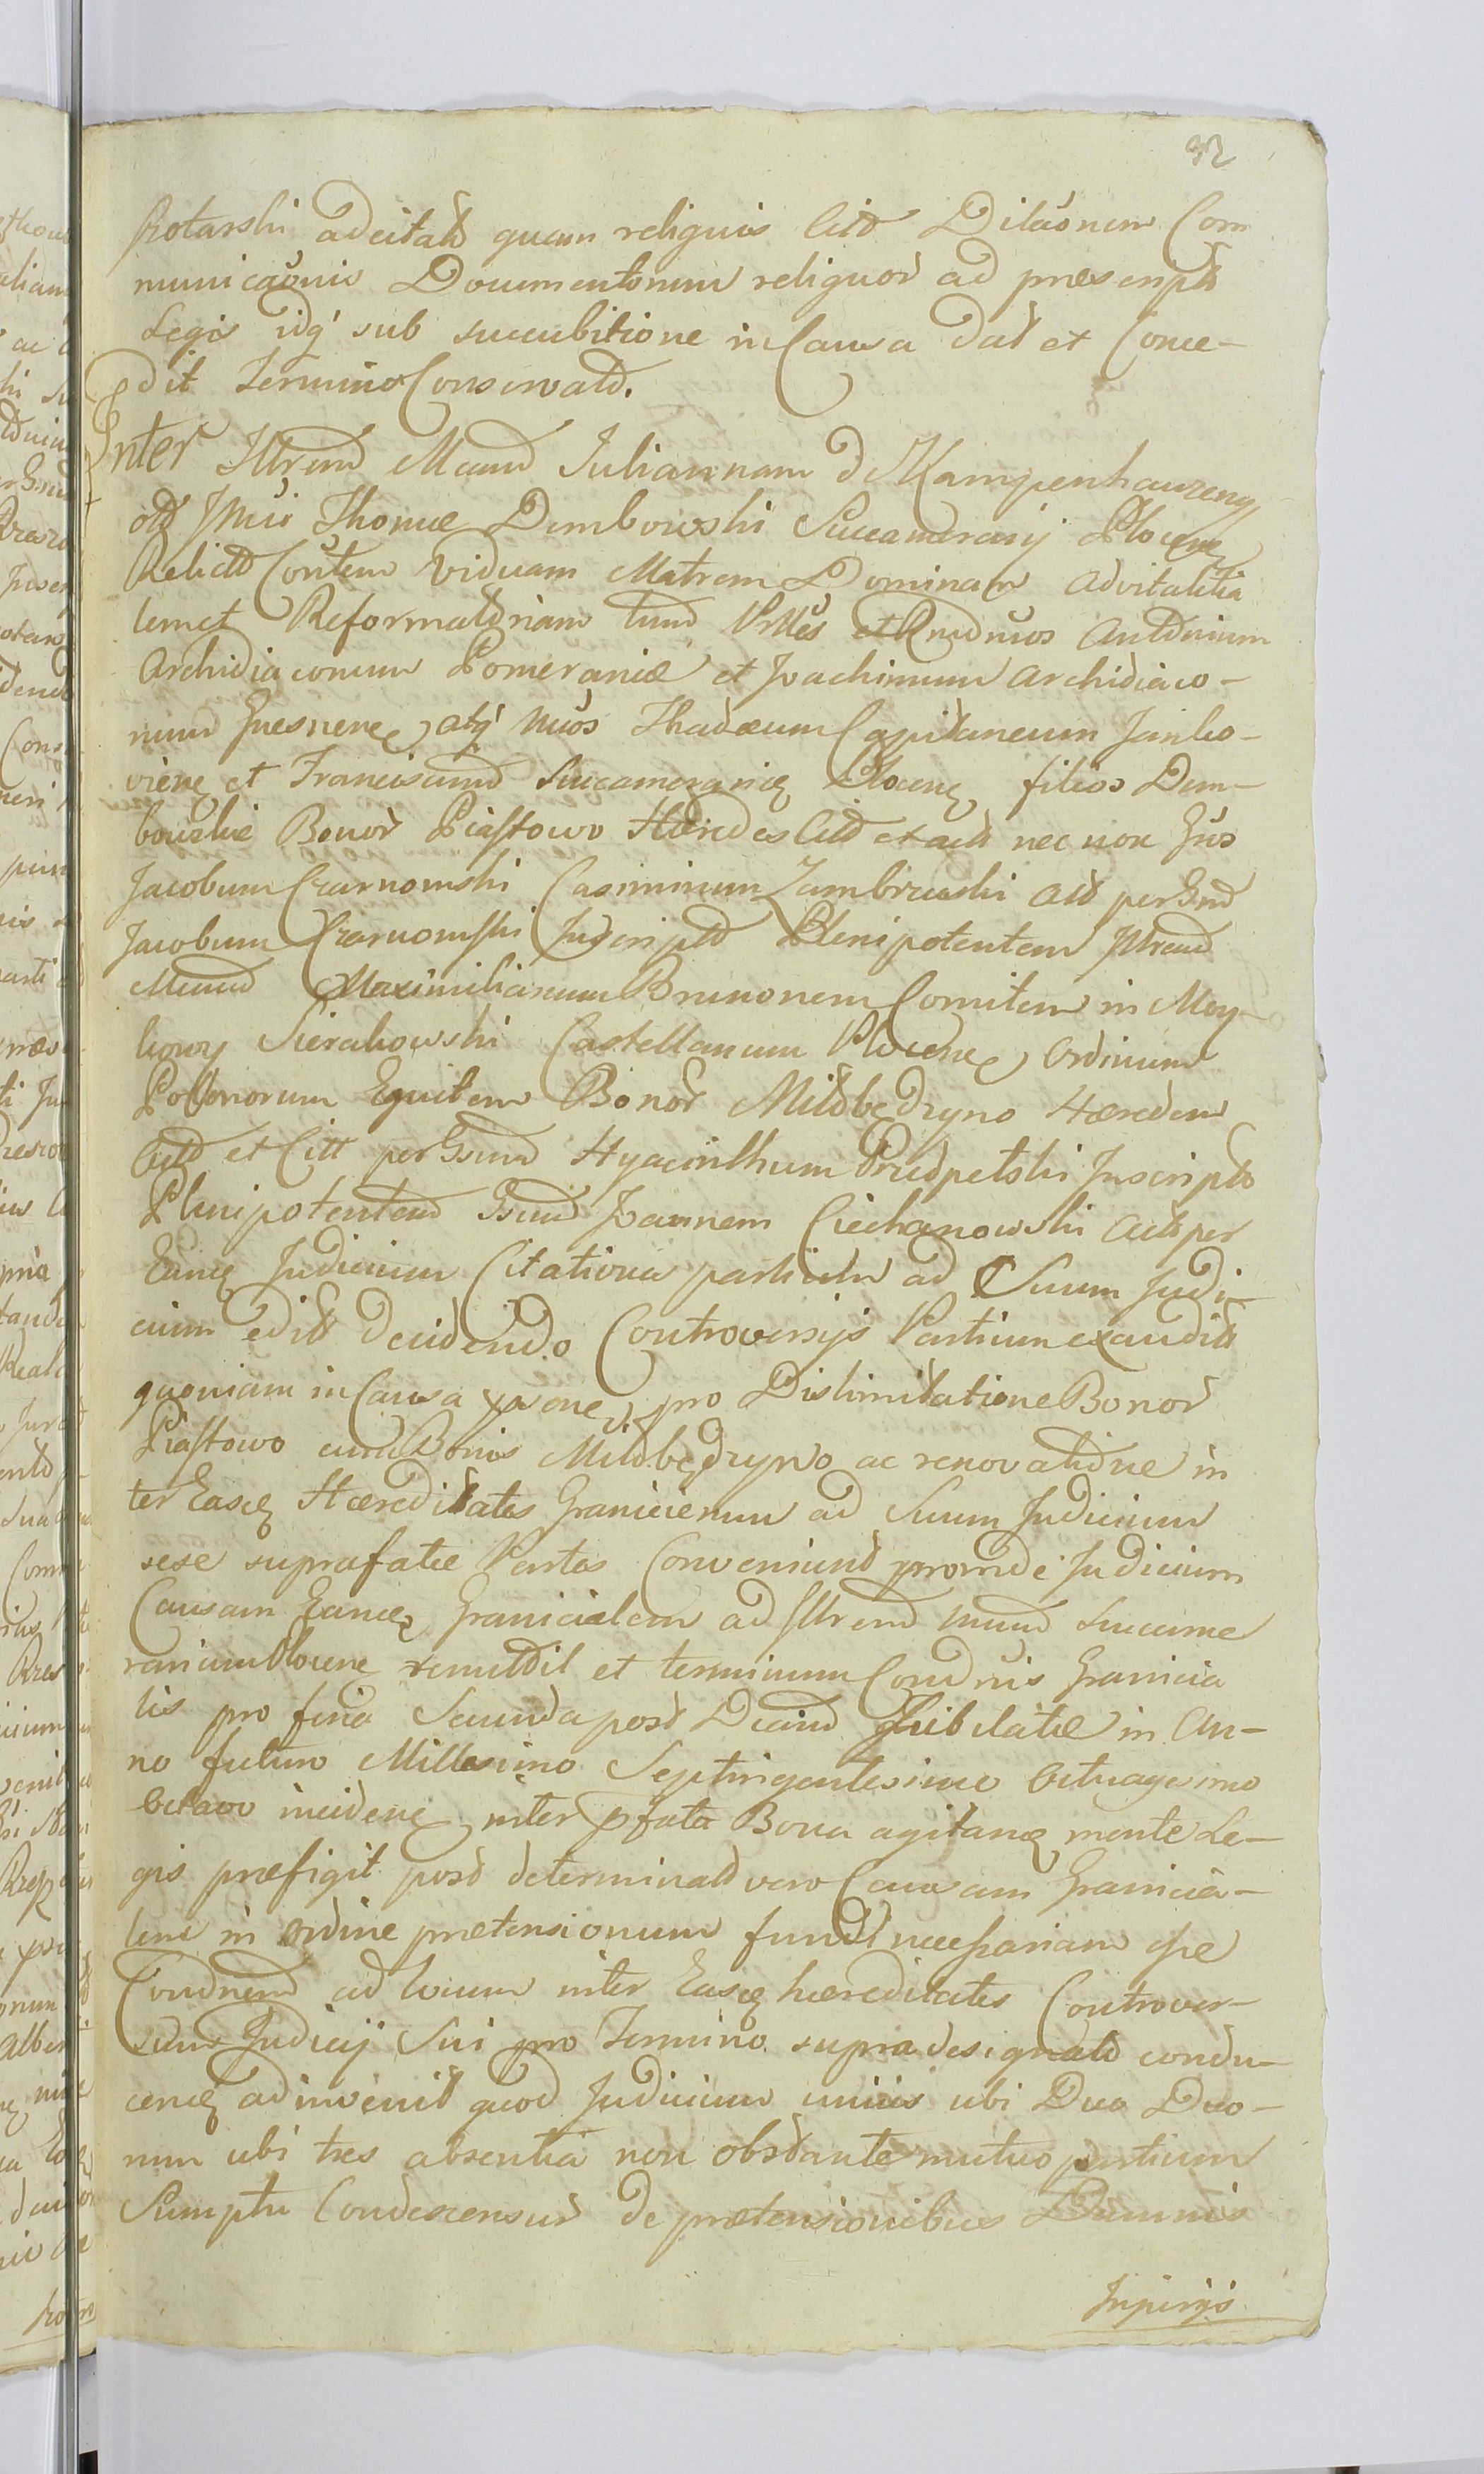 92
Kotarski adcitatt quam reliquis Citt Dilãonem Com
municaõnis Documentorum reliquor ad præscript
Legis idq' sub succubitione in Causa dat et Conce-
dit Termino Conservatt.
Inter Illrem Mcam Juliannam de Kampenhauzeny
olt Mci Thomæ Dembowski Succamerarij Plocen
Relictt Contem Viduam Matrem Dominam advitalitia
lem et Reformatoriam tum Prlles et Rndmos Antonium
Archidiaconum Pomeraniæ et Joachimum Archidiaco-
num Gnesnenę atq' Mcos Thadæum Capitaneum Janko-
vienę et Franciscum Succamerarię Plocenę filios Dem-
bowskie Bonor Piastowo Hæredes Citt et actt nec non Gsos
Jacobum Czarnomski Casimirum Zambrzuski att per Gnd
Jacobum Czarnomski Inscriptt Plenipotentem Illrem
Mcum Maximilianum Brunonem Comitem in Moy-
kowy Sierakowski Castellanum Plocenę Ordinum
Polonorum Equitem Bonor Miłobędzyno Hæredem
Citt et Citt per Gsum Hyacinthum Przedpełski Inscriptt
Plenipotentem Gsum Joannem Ciechanowski actt per
Eundę Judicium Citationes partium ad Suum Judi-
cium edit decidendo Controversijs Partium exaudit
quoniam in Causa pñone pro Dislimitatione Bonor
Piastowo cum Bonis Miłobędzyno ac renovatione in
ter Easdę Hæreditates Granicierum ad Suum Judicium
sese suprafatæ Partes Conveniunt proinde Judicium
Causam Eandę Granicialem ad Illrem Mcum Succame
rarium Plocenę remittit et terminum Condnis Granicia
lis pro feria Secunda post Dcam Jubilatæ in An-
no futuro Millesimo Septingentesimo Octuagesimo
Octavo inciden inter pfata Bona agitanę mente Le-
gis præfigit post determinatt vero Causam Granicia-
lem in Ordine prætensionum fundi necessariam esse
Condnem ad locum inter Easdę hæreditates Controver-
sum Judicij Sui pro Termino supra designato condu-
cenę adinvenit quod Judicium unius ubi Duo Duo-
rum ubi tres absentia non obstante mutuo partium
Sumptu Condescensur de prætensionibus Damnis
Injurijs